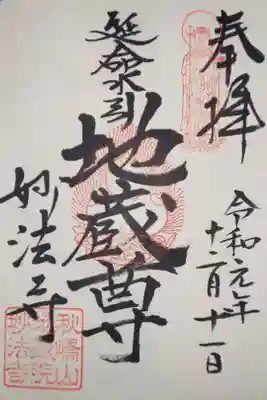 奉拝
令和元年
十二月十一日
延命水引
地蔵尊
妙法寺
秋嶋山
妙法寺